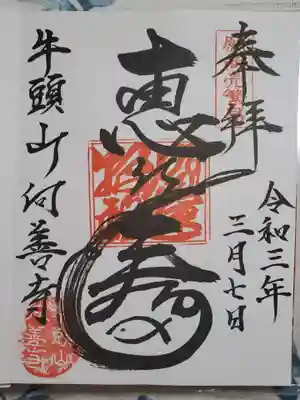 奉拝
令和三年
三月七日
恵比寿
牛頭山何善寺